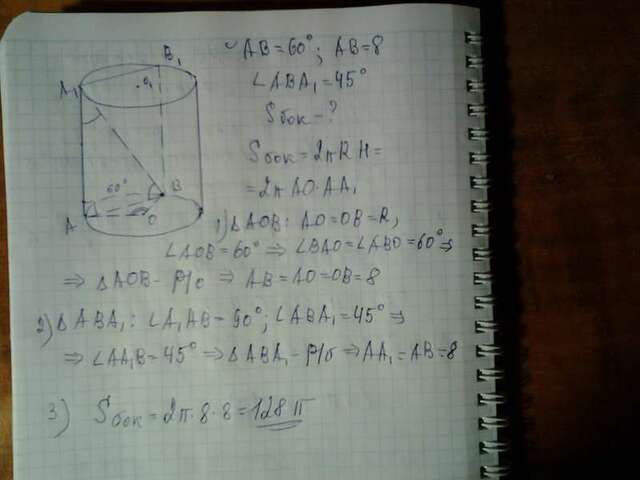 ◡AB=60°; AB=8
∠ABA₁=45°
Sбок-?
Sбок=2πRH=
=2πAO·AA₁
1) △AOB: AO=OB=R,
∠AOB=60° ⇒ ∠BAO=∠ABO=60° ⇒
⇒ △AOB - р/с ⇒ AB=AO=OB=8
2) △ABA₁: ∠A₁AB=90°; ∠ABA₁=45° ⇒
⇒ ∠AA₁B=45° ⇒ △ABA₁ - р/б ⇒ AA₁=AB=8
3) Sбок=2π·8·8=128π
B₁
A₁
O₁
60°
B
A
O